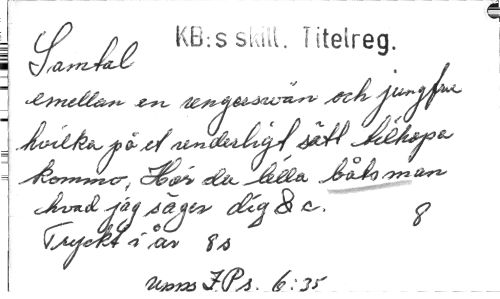 KB:s skill. Titelreg.
Samtal
emellan en ungerswän och jungfru
hvilka på et underligt sätt tilhopa
kommo, Hör du lilla båtsman
hvad jag säger dig &c. 8
Tryckt i år 8s
Upps F.P.s. 6:35